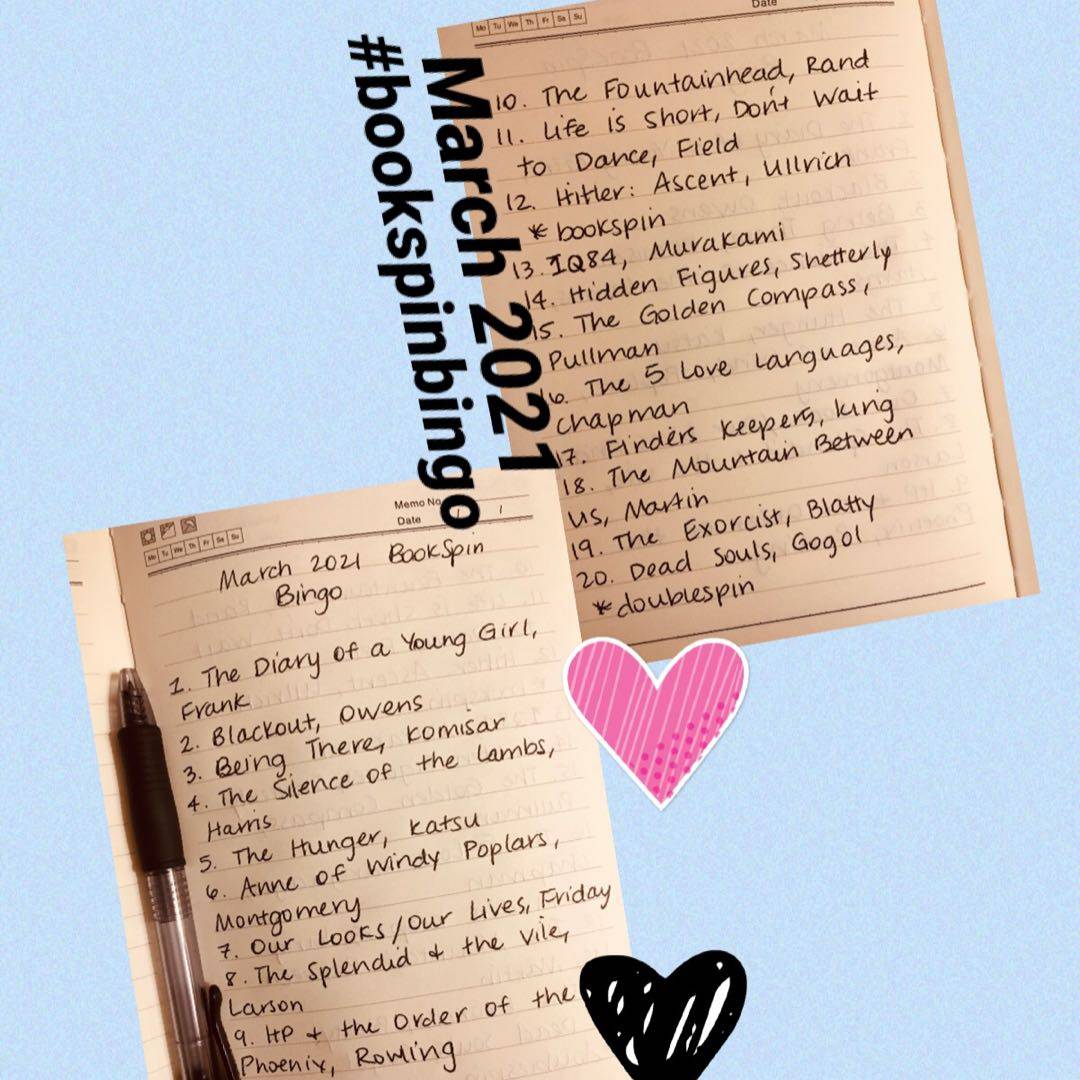 March 2021
#bookspinbingo
Memo No.
Date
Mo Tu We Th Fr Sa Su
March 2021 BookSpin
Bingo
1. The Diary of a Young Girl,
Frank
2. Blackout, Owens
3. Being There, Komisar
4. The Silence of the Lambs,
Harris
5. The Hunger, Katsu
6. Anne of Windy Poplars,
Montgomery
7. Our Looks/Our Lives, Friday
8. The Splendid & the Vile,
Larson
9. HP & the Order of the
Phoenix, Rowling
Date
Mo Tu We Th Fr Sa Su
10. The Fountainhead, Rand
11. Life is Short, Don't Wait
to Dance, Field
12. Hitler: Ascent, Ullrich
* bookspin
13. 1Q84, Murakami
14. Hidden Figures, Shetterly
15. The Golden Compass,
Pullman
16. The 5 Love Languages,
Chapman
17. Finders Keepers, King
18. The Mountain Between
Us, Martin
19. The Exorcist, Blatty
20. Dead Souls, Gogol
* doublespin